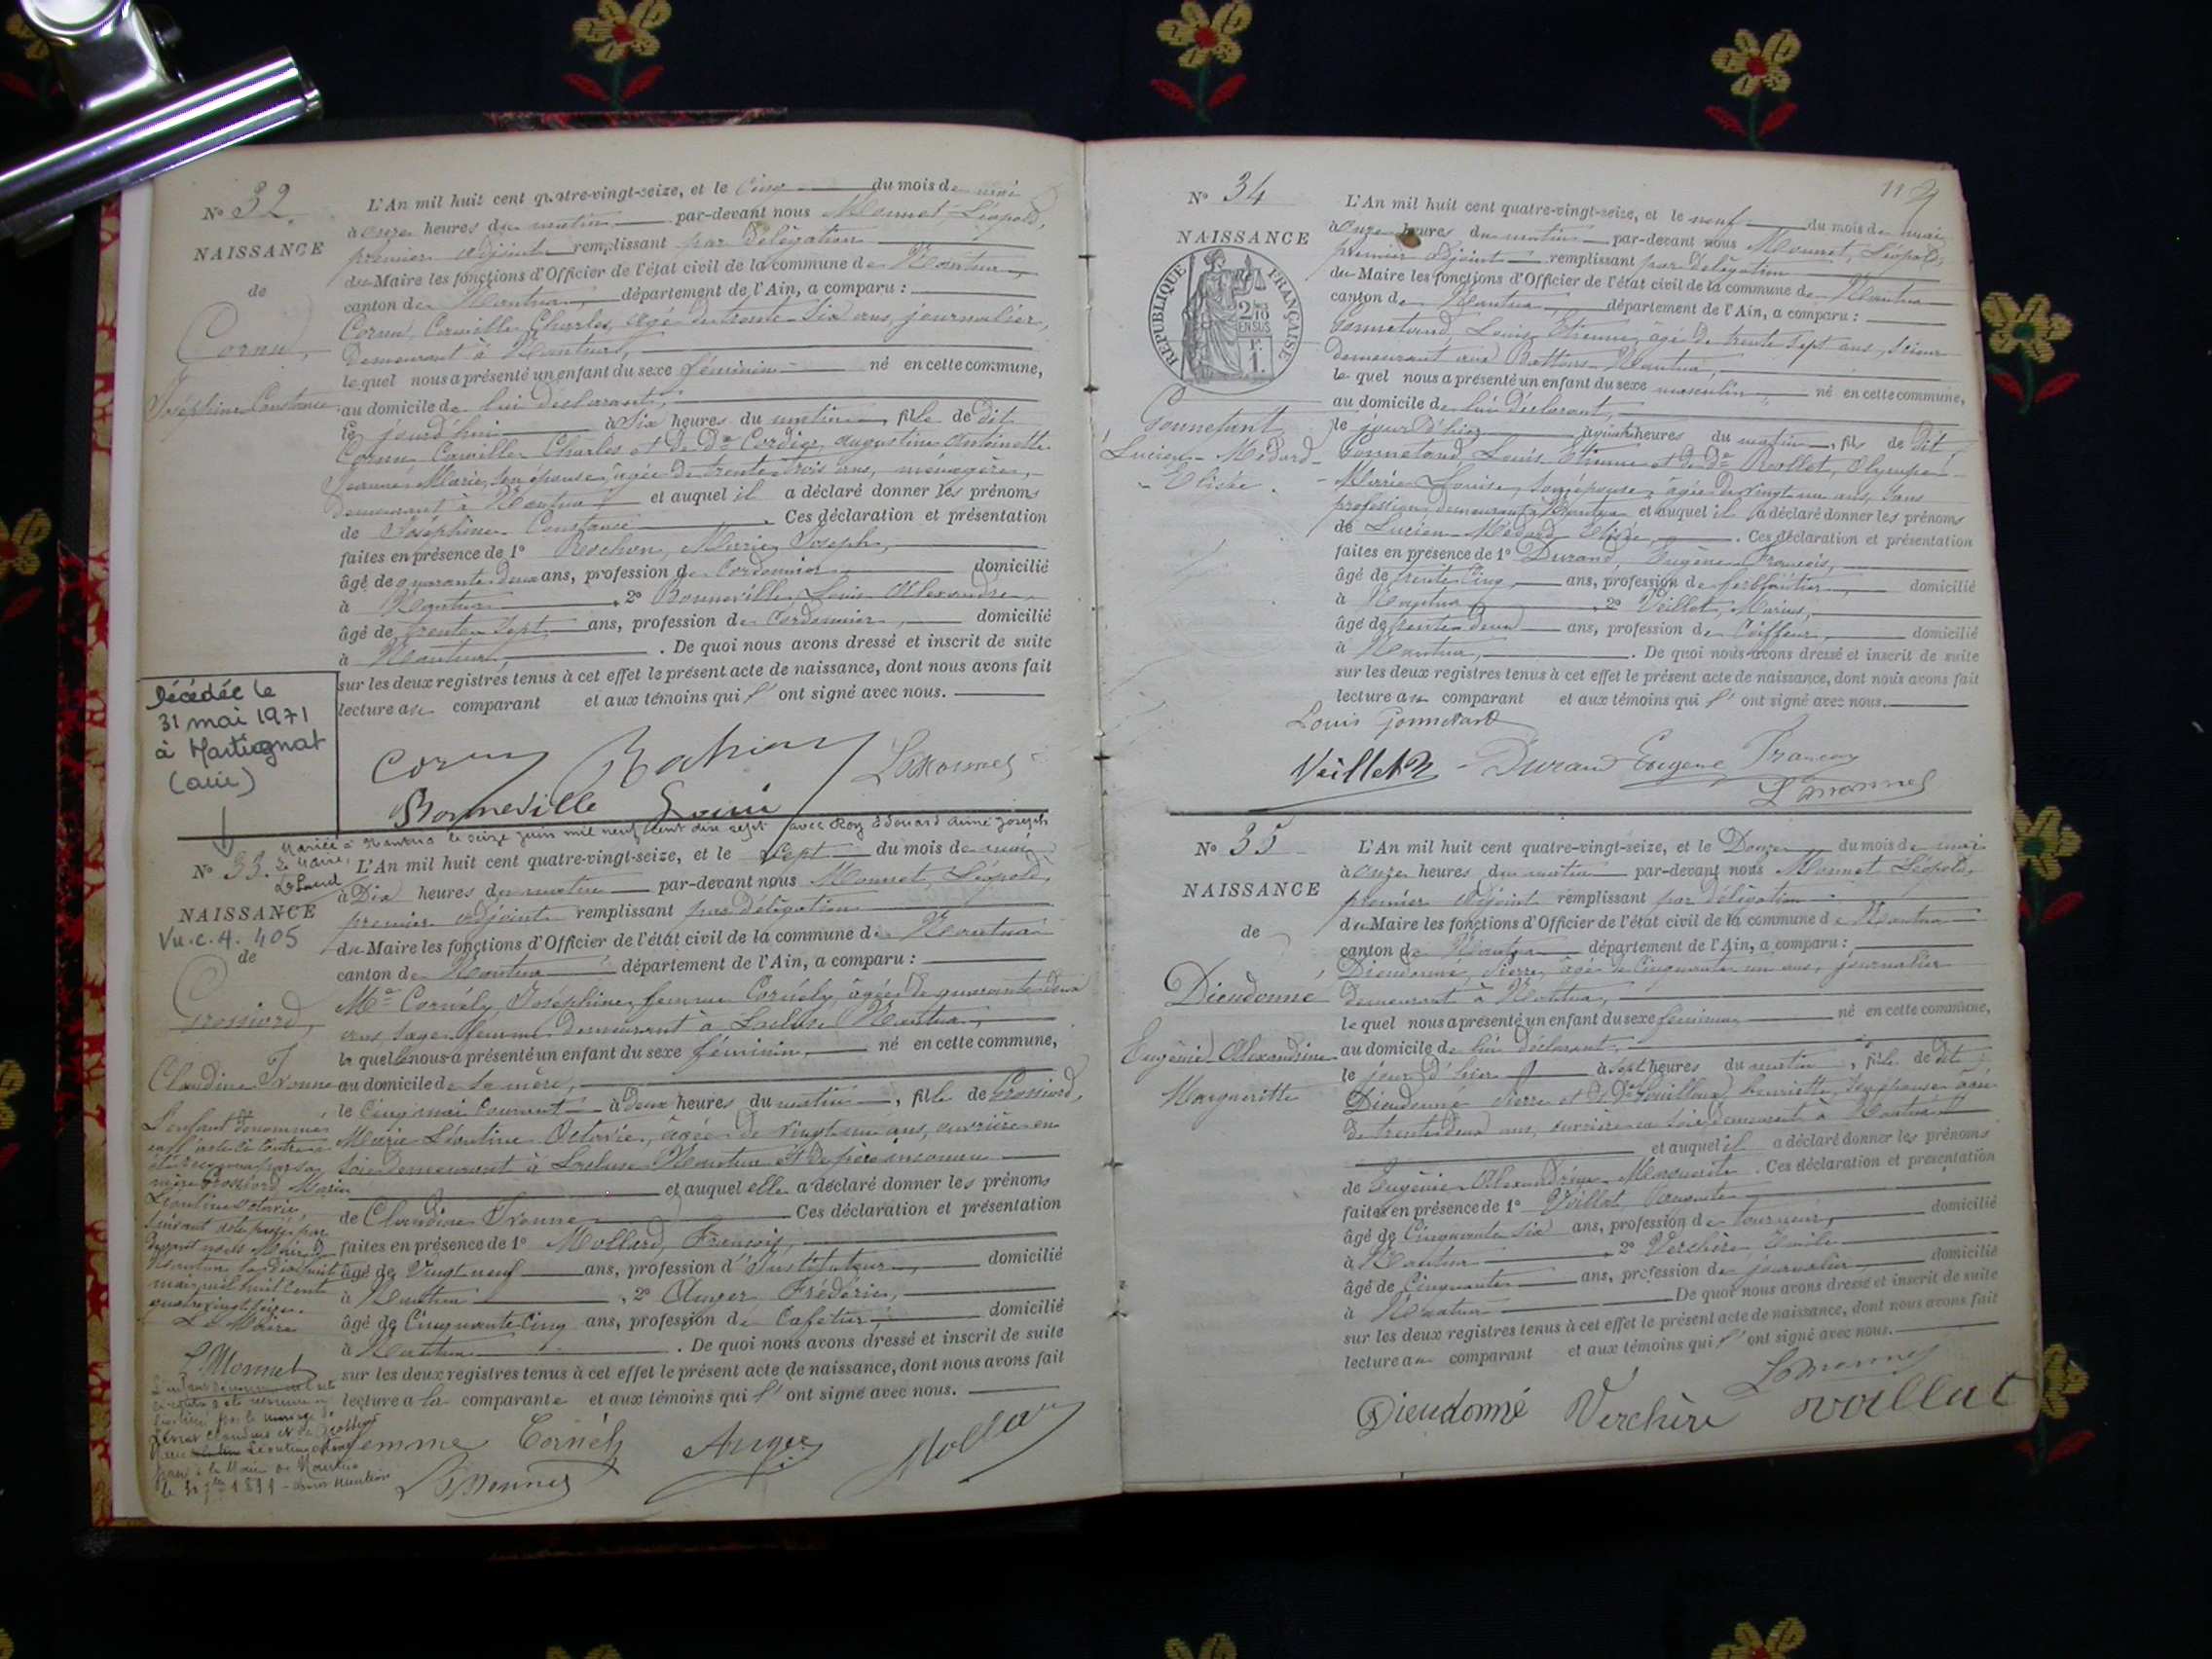 N° 32.
NAISSANCE
de
Cornu,
Joséphine Constance
L'An mil huit cent quatre-vingt-seize, et le Cinq du mois de mai
à onze heures du matin par-devant nous Monnet Léopold,
premier adjoint remplissant par délégation
du Maire les fonctions d'Officier de l'état civil de la commune de Nantua
canton de Nantua, département de l'Ain, a comparu :
Cornu, Camille Charles, âgé de trente six ans, journalier,
demeurant à Nantua,
le quel nous a présenté un enfant du sexe féminin né en cette commune,
au domicile de lui déclarant,
le jourd'hui à Six heures du matin, fille de dit
Cornu Camille Charles et de De Cordier, Augustine Antoinette
Jeanne Marie, son épouse, âgée de trente trois ans, ménagère,
demeurant à Nantua et auquel il a déclaré donner les prénoms
de Joséphine Constance. Ces déclaration et présentation
faites en présence de 1° Marie Joseph,
âgé de quarante deux ans, profession de Cordonnier domicilié
à Nantua, 2° Bonneville Louis Alexandre
âgé de trente sept ans, profession de Cordonnier, domicilié
à Nantua, . De quoi nous avons dressé et inscrit de suite
sur les deux registres tenus à cet effet le présent acte de naissance, dont nous avons fait
lecture au comparant et aux témoins qui l' ont signé avec nous.
Cornu
Bonneville Louis
L. Monnet
Décédée le
31 mai 1971
à Martignat
(ain)
Mariée à Nantua le seize juin mil neuf cent dix sept avec Roy Edouard Aimé Joseph
Le Maire,
N° 33.
NAISSANCE
Vu.c.4.405
de
Grossiord,
Claudine Ivonne
L'An mil huit cent quatre-vingt-seize, et le Sept du mois de mai
à Dix heures du matin par-devant nous Monnet, Léopold,
premier adjoint remplissant par délégation
du Maire les fonctions d'Officier de l'état civil de la commune de Nantua
canton de Nantua département de l'Ain, a comparu :
Me Cornély, Joséphine, femme Cornély, âgée de quarante deux
ans, sage femme demeurant à Lacluse Nantua,
la quelle nous a présenté un enfant du sexe féminin, né en cette commune,
au domicile de sa mère,
le Cinq mai Courant à Deux heures du matin, fille de Grossiord,
Marie Léontine Octavie, âgée de vingt un ans, ouvrière en
soie demeurant à Lacluse Nantua et de père inconnu
et auquel elle a déclaré donner les prénoms
de Claudine Ivonne Ces déclaration et présentation
faites en présence de 1° Mollard, François,
âgé de Vingt neuf ans, profession d'Instituteur, domicilié
à Nantua, 2° Auger Frédéric,
âgé de Cinquante Cinq ans, profession de Cafetier, domicilié
à Nantua . De quoi nous avons dressé et inscrit de suite
sur les deux registres tenus à cet effet le présent acte de naissance, dont nous avons fait
lecture à la comparante et aux témoins qui l' ont signé avec nous.
L'enfant dénommé
en l'acte ci contre a
été reconnu par sa
mère Grossiord Marie
Léontine Octavie,
suivant acte passé par
devant nous Maire de
Nantua le dix huit
mai mil huit cent
quatre vingt seize.
Le Maire
L. Monnet
femme Cornély Auger Mollard
L. Monnet
N° 34
NAISSANCE
RÉPUBLIQUE FRANÇAISE
2/10 EN SUS
F. 1.
Gonnetant
Lucien Médard
Elisée.
L'An mil huit cent quatre-vingt-seize, et le neuf du mois de mai
à Onze heures du matin par-devant nous Monnet, Léopold,
premier adjoint remplissant par délégation
du Maire les fonctions d'Officier de l'état civil de la commune de Nantua
canton de Nantua, département de l'Ain, a comparu :
Gonnetand, Louis Etienne, âgé de trente sept ans, scieur
demeurant aux Battoirs Nantua,
le quel nous a présenté un enfant du sexe masculin né en cette commune,
au domicile de lui déclarant,
le jour d'hier heures du matin, fils de dit
Gonnetand Louis Etienne et de De Rollet, Olympe
Marie Louise, son épouse, âgée de vingt un ans, sans
profession demeurant à Nantua et auquel il a déclaré donner les prénoms
de Lucien Médard Elisée, . Ces déclaration et présentation
faites en présence de 1° Durand, Eugène François,
âgé de trente Cinq ans, profession de ferblantier, domicilié
à Nantua, 2° Veillet, Marius,
âgé de trente deux ans, profession de Coiffeur, domicilié
à Nantua, . De quoi nous avons dressé et inscrit de suite
sur les deux registres tenus à cet effet le présent acte de naissance, dont nous avons fait
lecture au comparant et aux témoins qui l' ont signé avec nous.
Louis Gonnetand
Veillet M Durand Eugene François
L. Monnet
N° 35
NAISSANCE
de
Dieudonné
Eugénie Alexandrine
Margueritte
L'An mil huit cent quatre-vingt-seize, et le Douze du mois de mai
à onze heures du matin par-devant nous Monnet Léopold,
premier adjoint remplissant par délégation
du Maire les fonctions d'Officier de l'état civil de la commune de Nantua
canton de Nantua département de l'Ain, a comparu :
Dieudonné, Pierre, âgé de Cinquante un ans, journalier
demeurant à Nantua,
le quel nous a présenté un enfant du sexe féminin né en cette commune,
au domicile de lui déclarant,
le jour d'hier à sept heures du matin, fille de dit
Dieudonné Pierre et de De henriette, son épouse âgée
de trente deux ans, ouvrière en soie demeurant à Nantua
et auquel il a déclaré donner les prénoms
de Eugénie Alexandrine Marguerite. Ces déclaration et présentation
faites en présence de 1° Voillat,
âgé de Cinquante Six ans, profession de tourneur, domicilié
à Nantua 2° Verchère, Emile
âgé de Cinquante ans, profession de journalier domicilié
à Nantua De quoi nous avons dressé et inscrit de suite
sur les deux registres tenus à cet effet le présent acte de naissance, dont nous avons fait
lecture au comparant et aux témoins qui l' ont signé avec nous.
L. Monnet
Dieudonné Verchère voillat